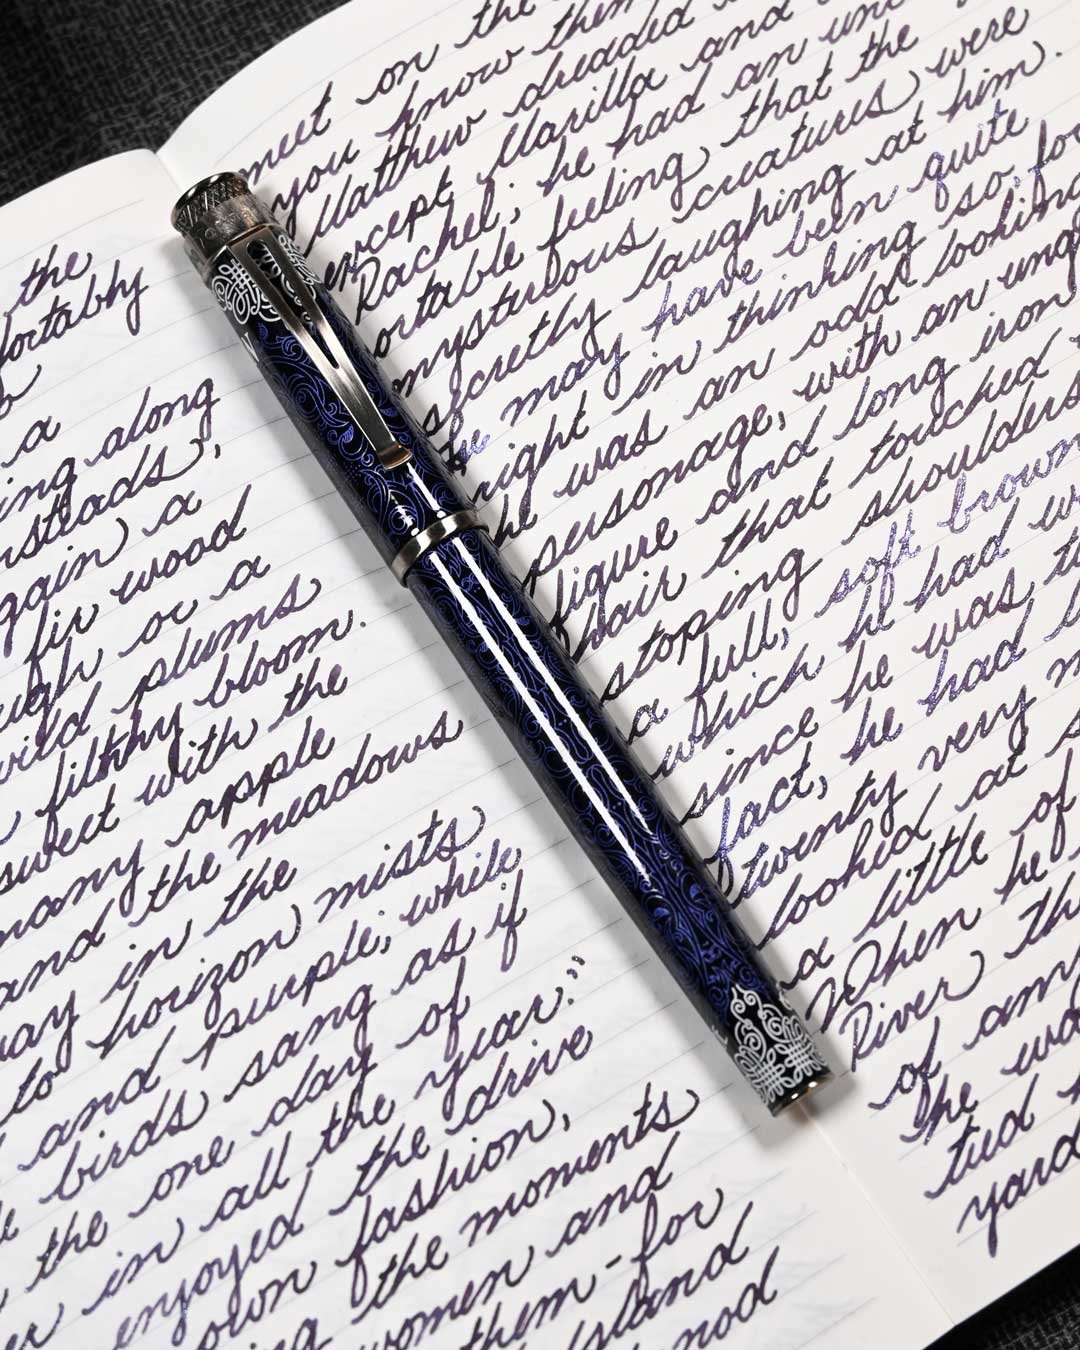 the
fortably
a
ing along
nsteads,
gain a
fir wood
ugh or a
wild plums
filthy bloom.
sweet with the
many apple
and the meadows
way in the
to horizon mists
and purple; while
birds sang as if
the one day of
in all the year."
enjoyed the drive
own fashion,
ing the moments
women and
them-for
Island
nod
meet on the
you know them
Matthew dreaded
except Marilla and
Rachel; he had an un
ortable feeling that the
mysterious creatures were
secretly laughing at him.
He may have been quite
right in thinking so, for
he was an odd looking
personage, with an ung
figure and long iron
hair that touched
stoping shoulders
a full, soft brown
which he had w
since he was tw
fact, he had l
twenty very m
looked at s
a little of
When he
River th
of any
he wa
tied h
yard